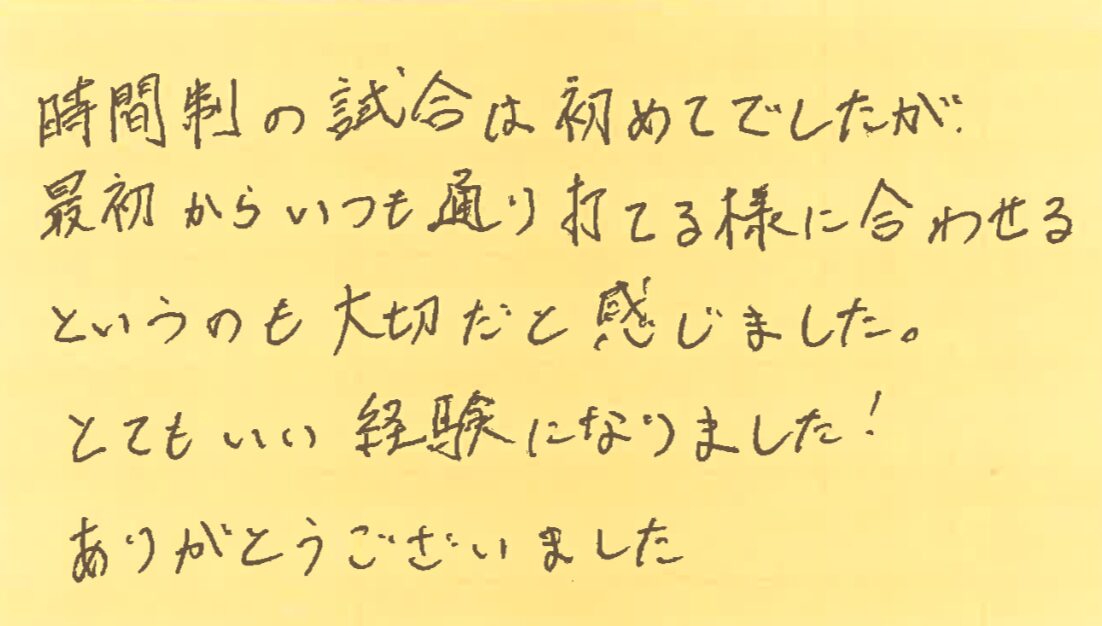 時間制の試合は初めてでしたが、
最初からいつも通り打てる様に合わせる
というのも大切だと感じました。
とてもいい経験になりました!
ありがとうございました